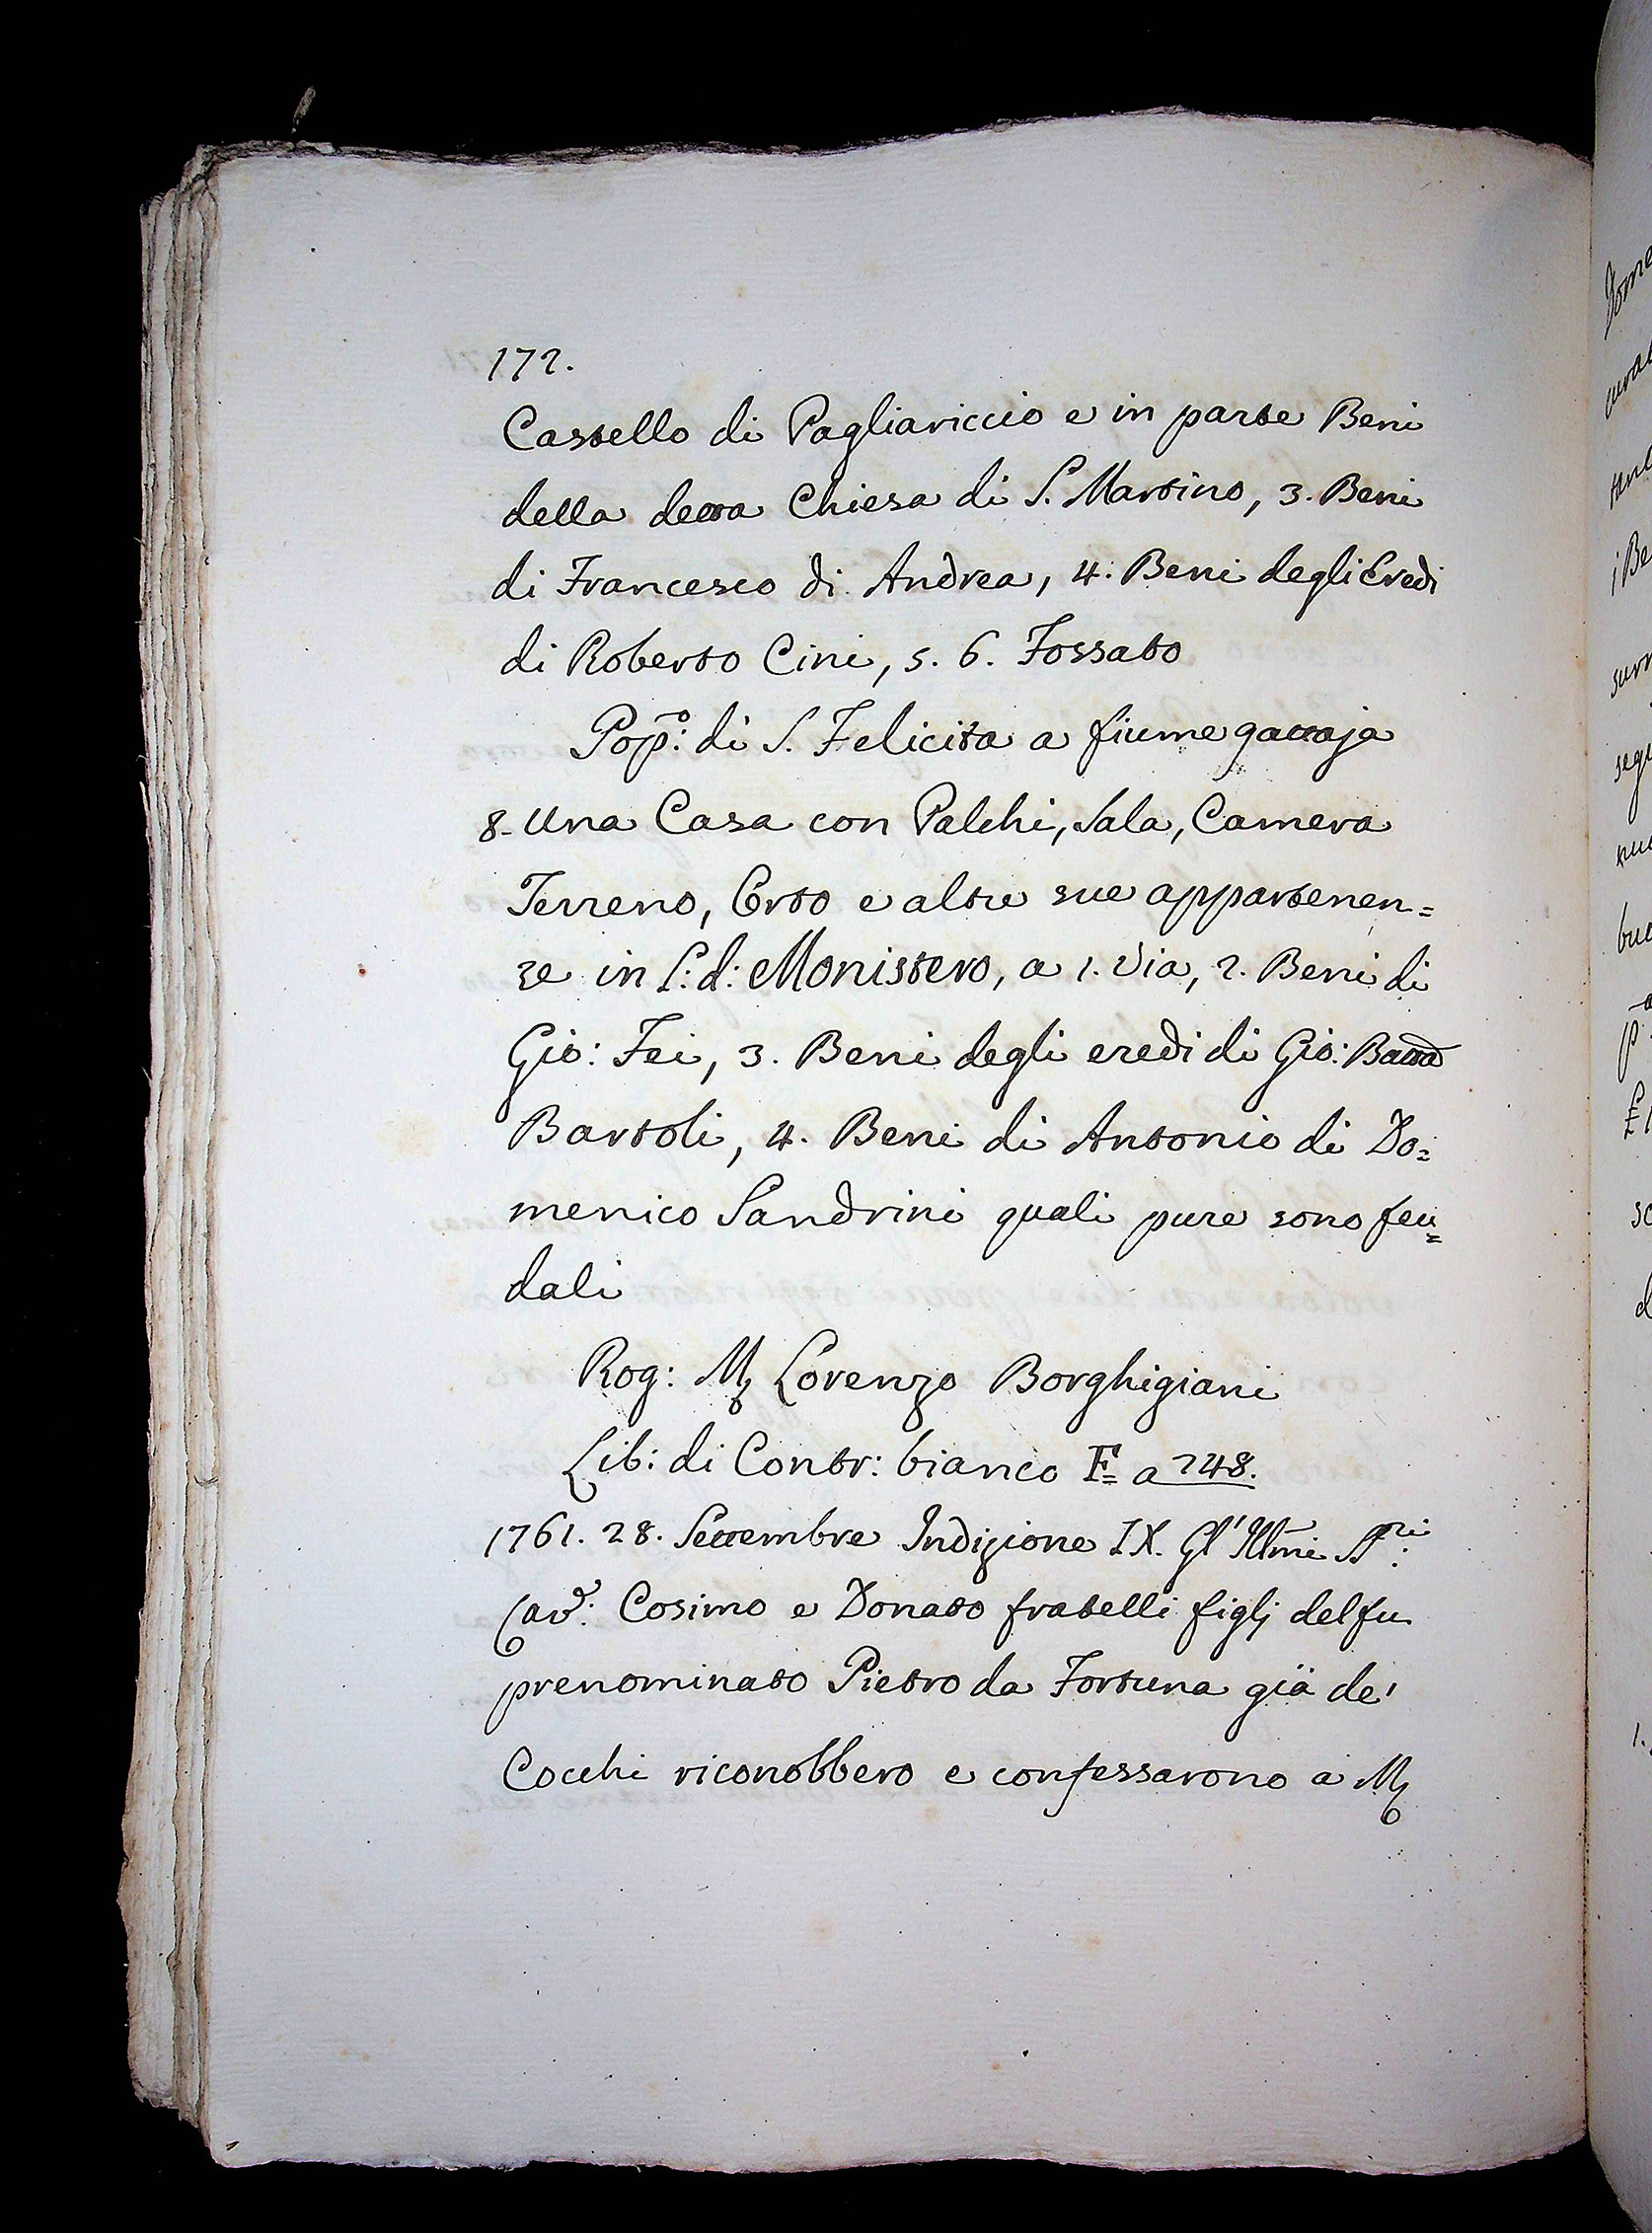 172.
Castello di Pagliariccio e in parte Beni
della detta Chiesa di S. Martino, 3. Beni
di Francesco di Andrea, 4. Beni degli Eredi
di Roberto Cini, 5. 6. Fossato
Pop:º di S. Felicita a fiume gattaja
8. Una Casa con Palchi, Sala, Camera
Terreno, Orto e altre sue appartenen=
ze in L: d: Monistero, a 1. Via, 2. Beni di
Gio: Fei, 3. Beni degli eredi di Gio: Batta
Bartoli, 4. Beni di Antonio di Do=
menico Sandrini quali pure sono feu=
dali
Rog: M Lorenzo Borghigiani
Lib: di Contr: bianco F= a 248.
1761. 28. Settembre Indizione IX. Gl' Illmi SS:ri
Cav: Cosimo e Donato fratelli figlj del fu
prenominato Pietro da Fortuna già de'
Cocchi riconobbero e confessarono a M